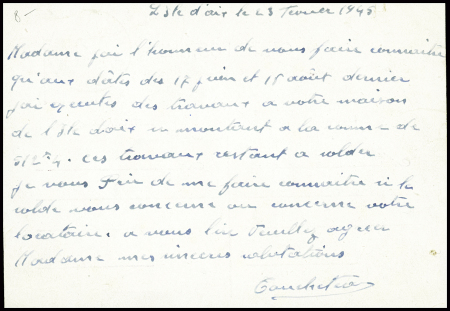 L'Ile d'aix le 23 fevrier 1945
Madame j'ai l'honneur de vous faire connaitre
qu'aux dâtes des 17 juin et 15 août dernier
j'ai executes des travaux a votre maison
de l'Ile d'aix se montant a la somme de
ces travaux restant a solder
je vous prie de me faire connaitre si le
solde vous concerne ou concerne votre
locataire. a vous lire Veuillez agreer
Madame mes sinceres salutations